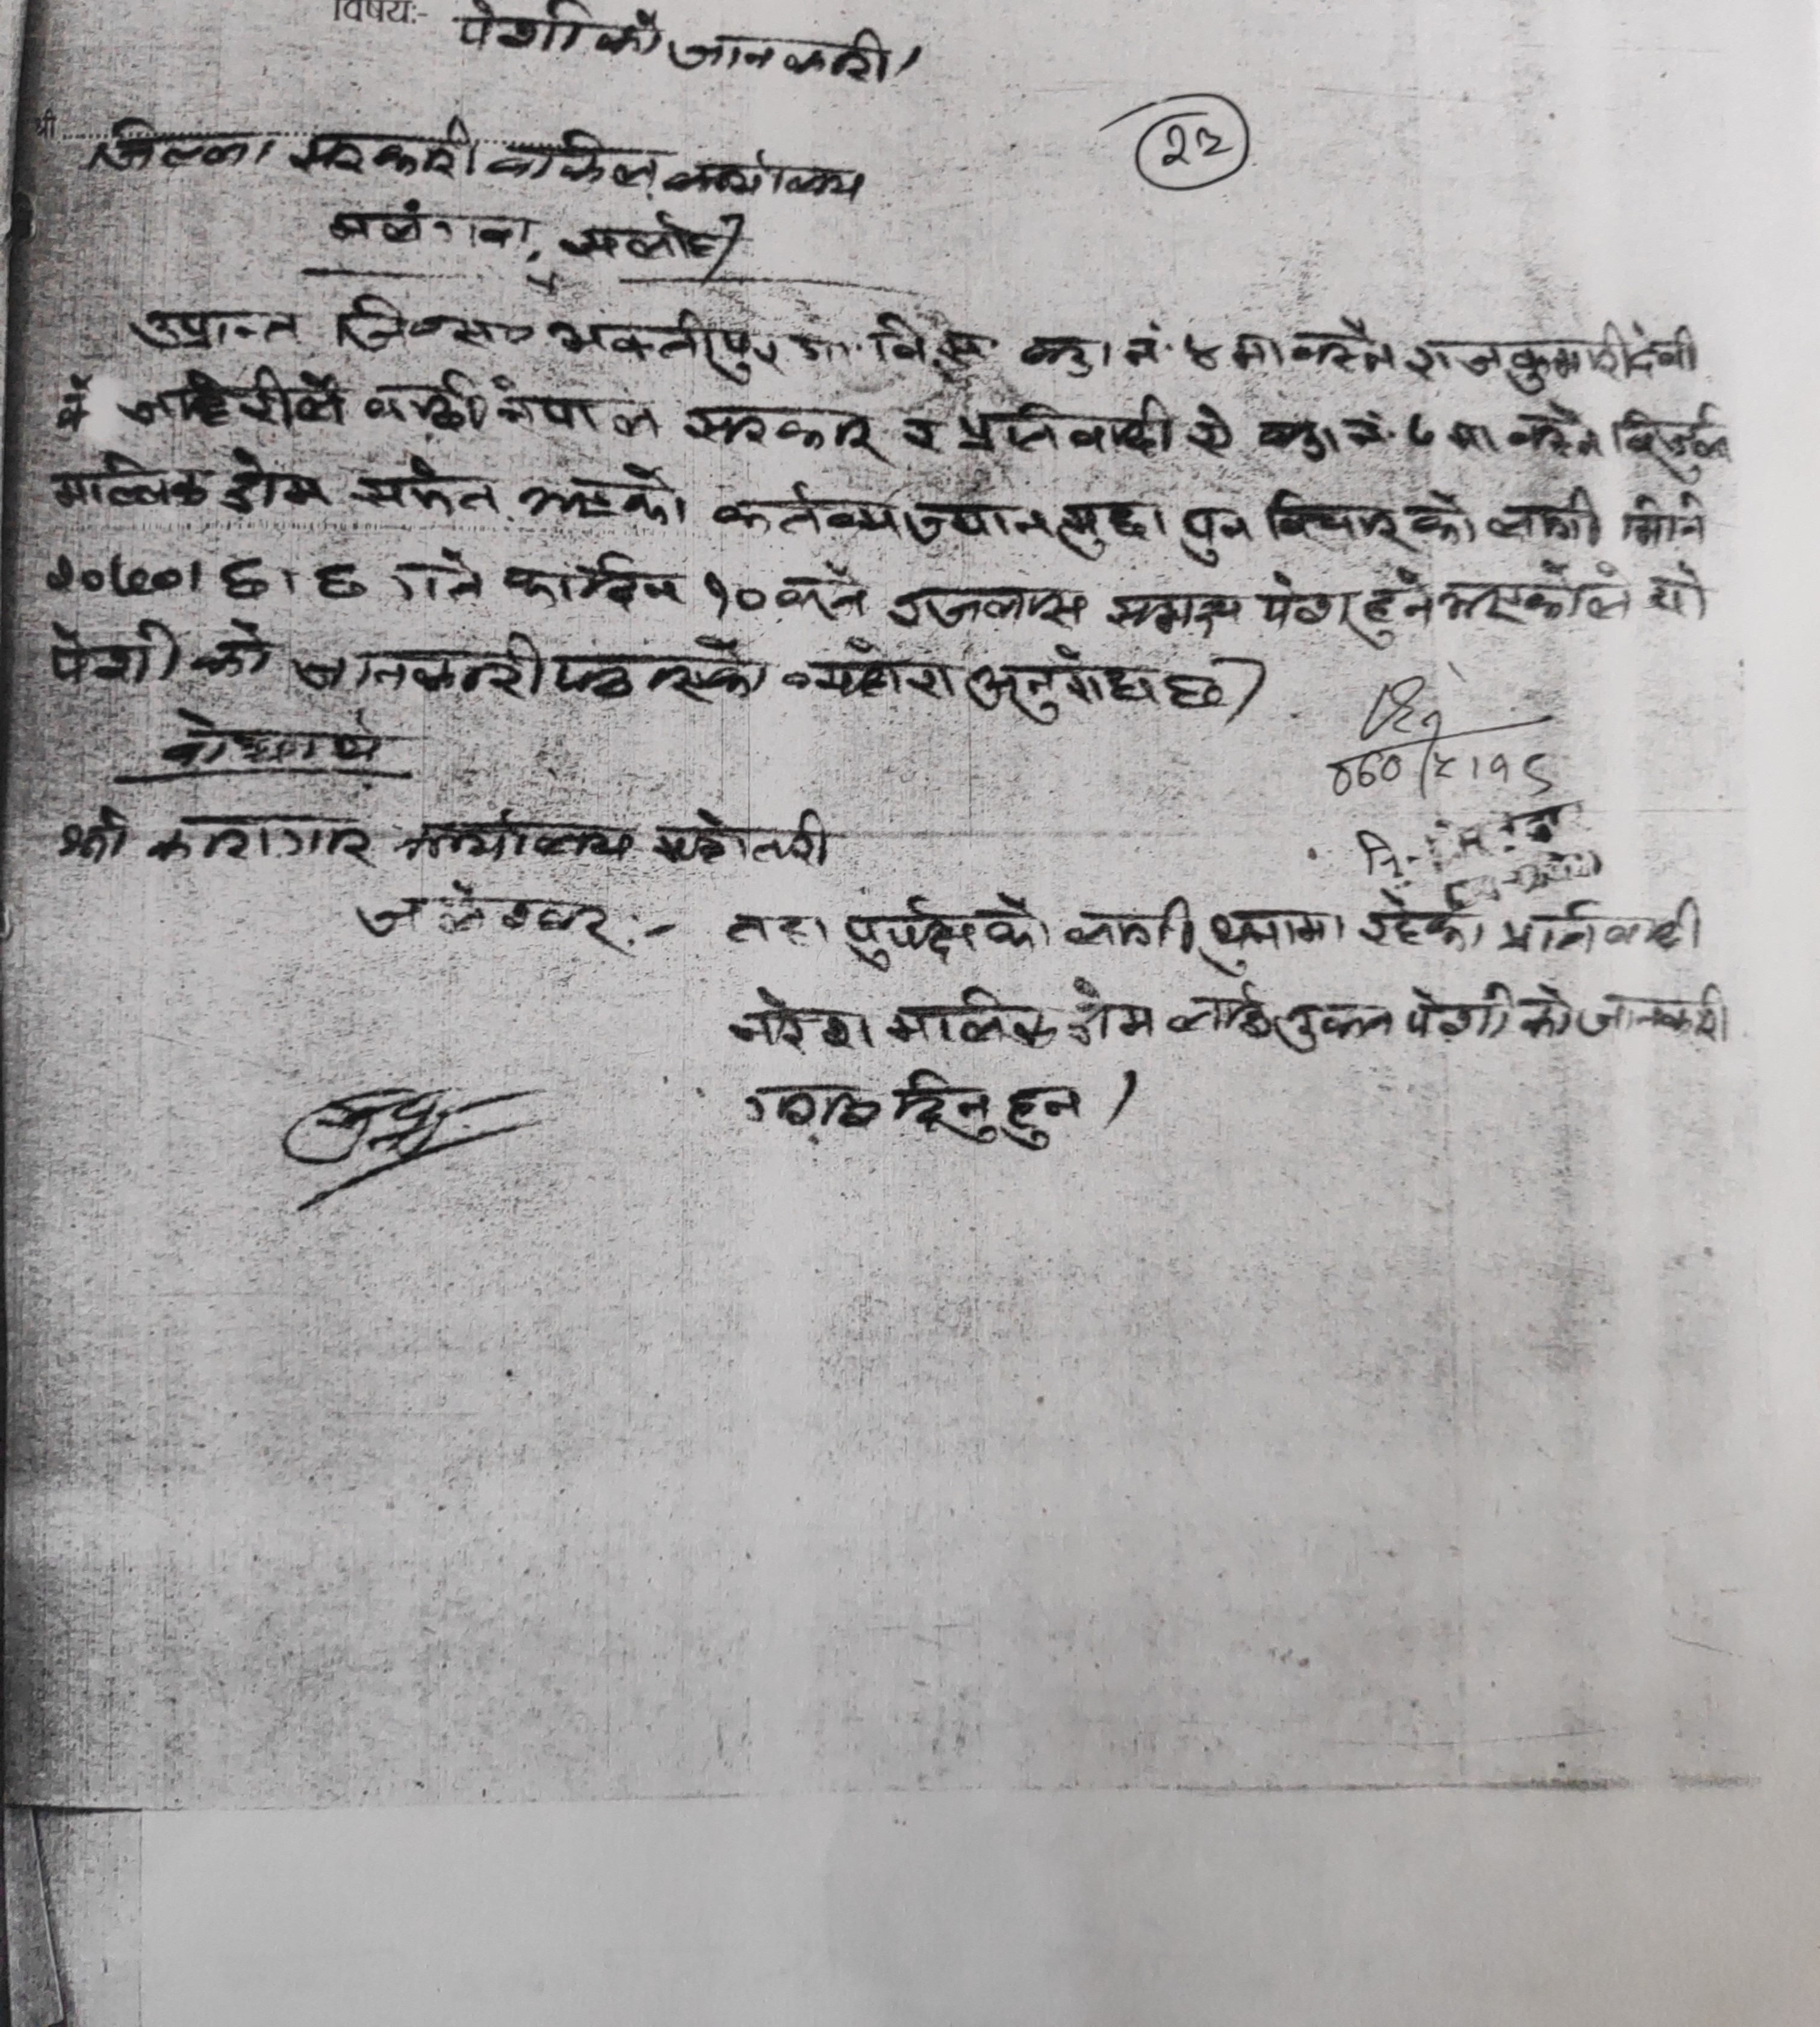 विषयः- पेशीको जानकारी।
२२
श्री
जिल्ला सरकारी वकिल कार्यालय
मलंगवा, सर्लाही
उप्रान्त जिल्ला भक्तीपुर गा.वि.स. वडा नं. ४ मा बस्ने राजकुमारी देवी
को जाहेरीले वादी नेपाल सरकार र प्रतिवादी ऐ वडा नं. ७ मा बस्ने
मल्लिक डोम समेत भएको कर्तव्य ज्यान मुद्दा पुन विचारको लागी मिति
२०७०। ६। ६ गते का दिन १० बजे इजलास समक्ष पेश हुने भएकोले यो
पेशी को जानकारी पठाएको व्यहोरा अनुरोध छ।
०७०/५/१९
बोधार्थ
श्री कारागार कार्यालय महोत्तरी
जलेश्वर:- तहा पुर्पक्षको लागी थुनामा रहेका प्रतिवादी
नरेश मल्लिक डोम लाई उक्त पेशी को जानकारी
गराई दिनु हुन।